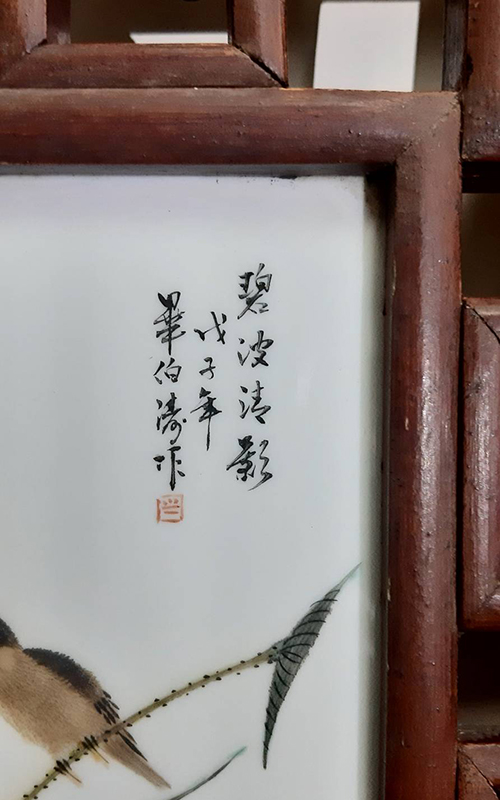 碧波清影
戊子年
畢伯濤作